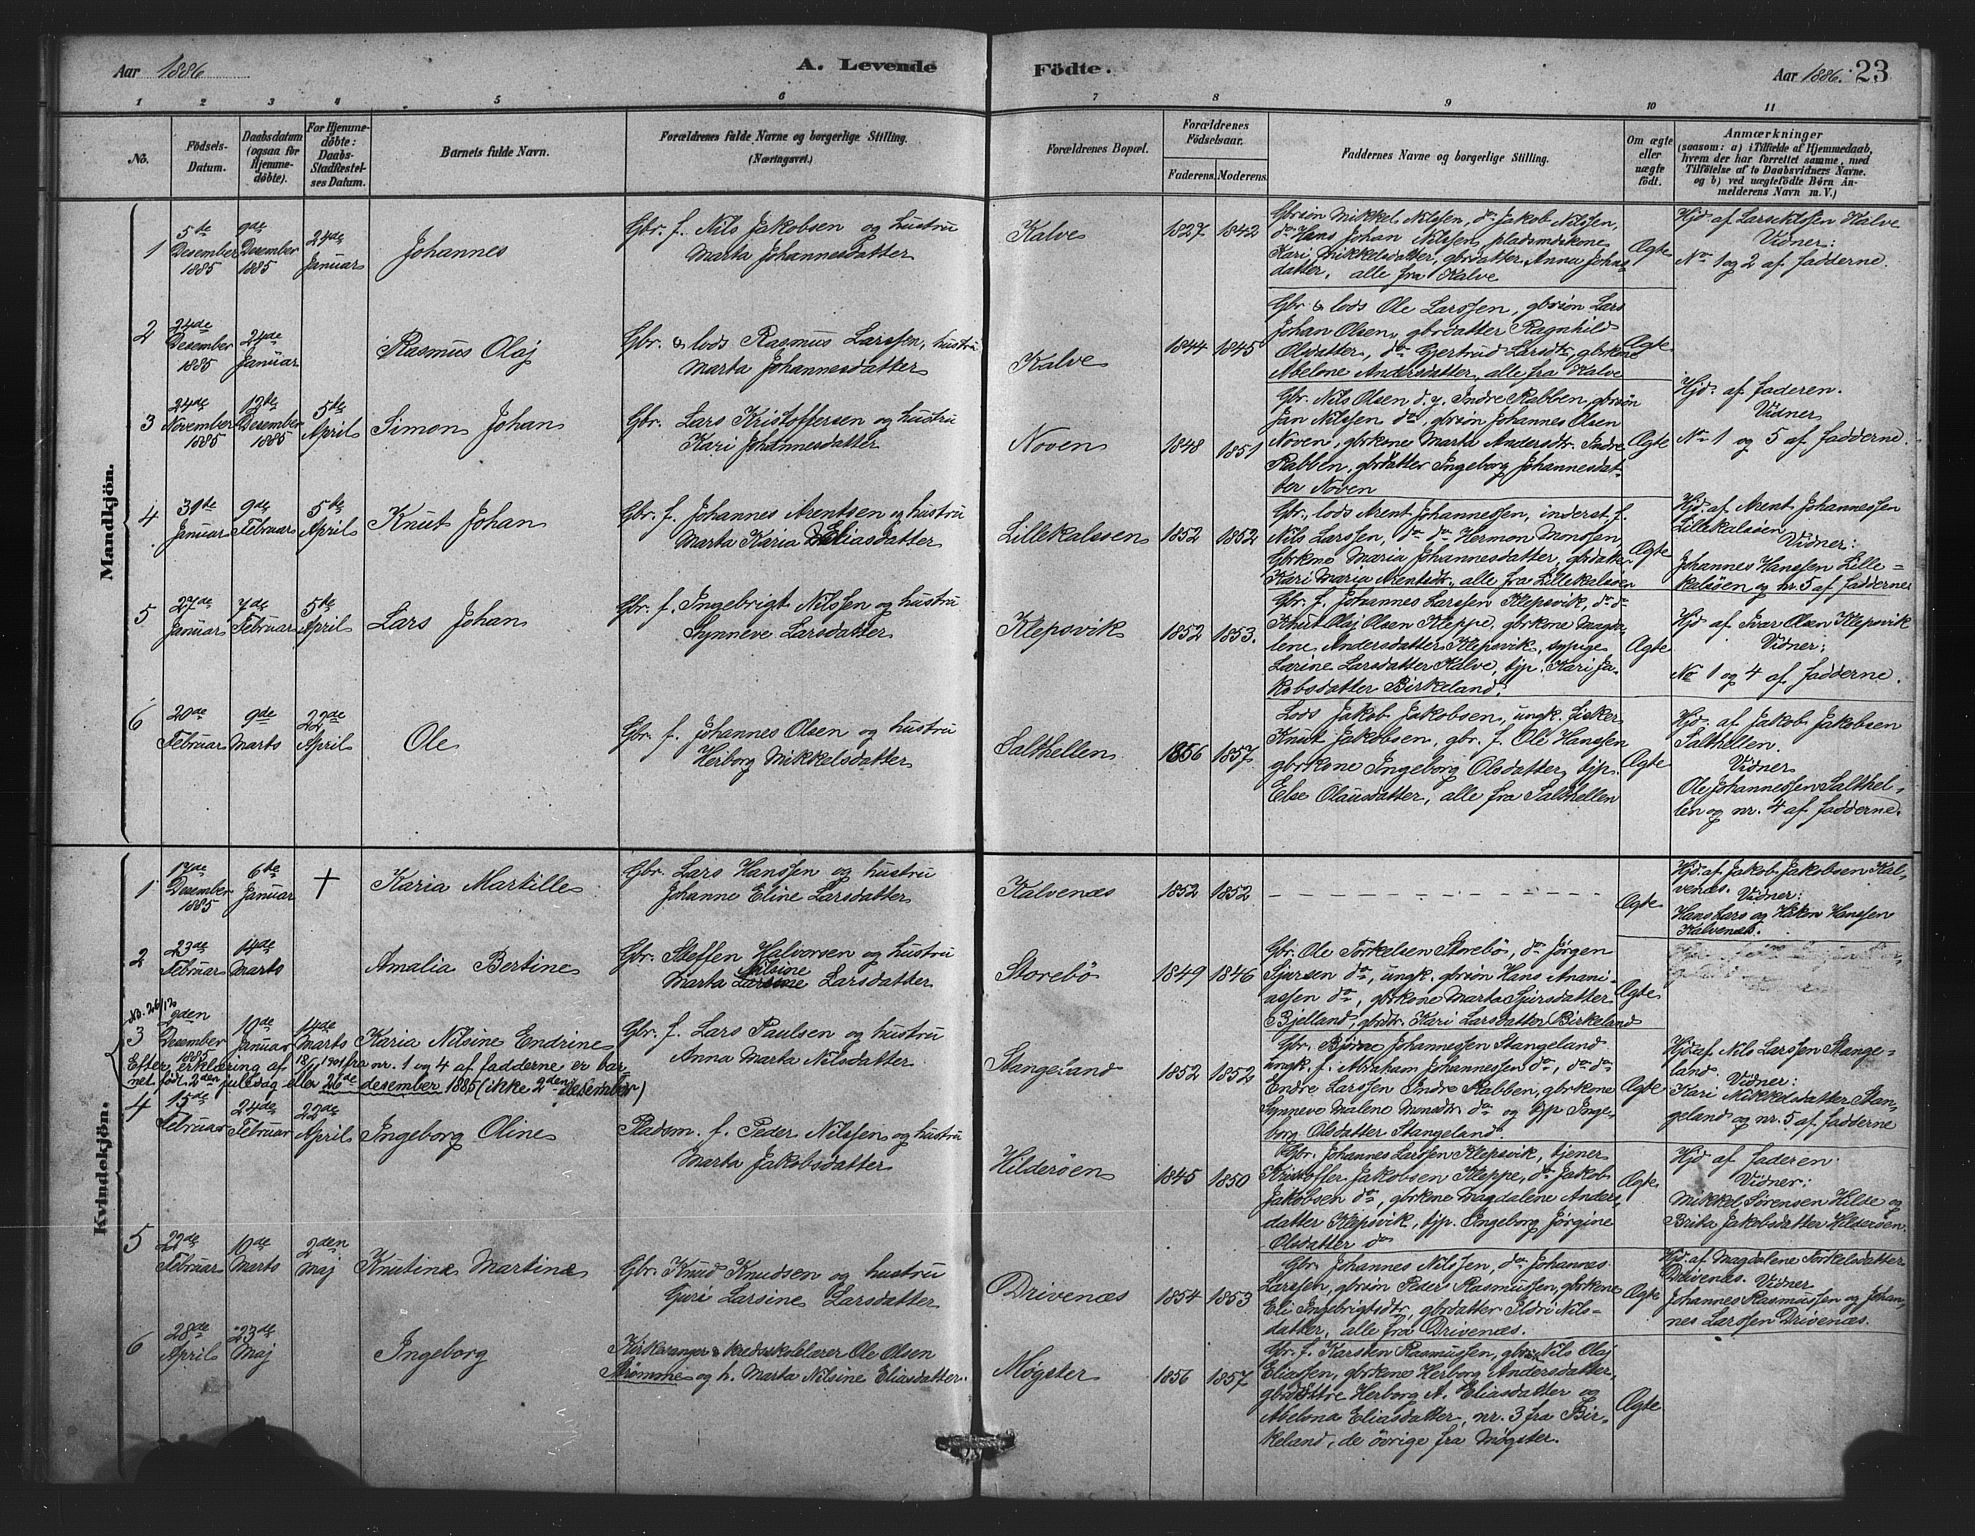 Aar 1886
A. Levende
Födte.
Aar 1886.
23
1 2 3 4 5 6 7 8 9 10 11
No.
Födsels-
Datum.
Daabsdatum
(ogsaa for
Hjemme-
döbte).
For Hjemme-
döbte:
Daabs-
Stadfæstel-
ses Datum.
Barnets fulde Navn.
Forældrenes fulde Navne og borgerlige Stilling.
(Næringsvei.)
Forældrenes Bopæl.
Forældrenes
Födselsaar.
Faderens.
Moderens.
Faddernes Navne og borgerlige Stilling.
Om ægte
eller
uægte
födt.
Anmærkninger
(saasom: a) i Tilfælde af Hjemmedaab,
hvem der har forrettet samme, med
Tilföielse af to Daabsvidners Navne.
og b) ved uægtefödte Börn An-
melderens Navn m. V.)
Mandkjön.
1
5te
Desember
1885
9de
Desember
1885
24de
Januar
Johannes
Gbr. f. Nils Jakobsen og hustru
Marta Johannesdatter
Kalve
1827
1842
Gbrsön Mikkel Nilssen, do Jakob Nilssen,
do Hans Johan Nilssen, pladsmdskone
Kari Mikkelsdatter, gbrdatter Anna Johns-
datter, alle fra Kalve
Ægte
Hjd. af Lars Nilssen Kalve
Vidner:
No 1 og 2 af fadderne.
2
24de
Desember
1885
24de
Januar
Rasmus Olaj
Gbr. & lods Rasmus Larssen, hustru
Marta Johannesdatter
Kalve
1844
1845
Gbr. & lods Ole Larssen, gbrsön Lars
Johan Olsen, gbrdatter Ragnhild
Olsdatter, do Gjertrud Larsdtr, gbrkone
Abelone Andersdatter, alle fra Kalve
Ægte
3
24de
November
1885
12te
Desember
1885
5te
April
Simon Johan
Gbr. Lars Kristoffersen og hustru
Kari Johannesdatter
Noven
1848
1851
Gbr. Nils Olsen d. y. Indre Rabben, gbrsön
Jan Nilssen do, gbrsön Johannes Olsen
Noven, gbrkone Marta Andersdtr. Indre
Rabben, gbrdatter Ingeborg Johannesdat-
ter Noven
Ægte
Hjd. af Faderen.
Vidner
No 1 og 5 af fadderne.
4
31de
Januar
9de
Februar
5te
April
Knut Johan
Gbr. f. Johannes Arentsen og hustru
Marta Karia Eliasdatter
Lillekalssen
1852
1852
Gbr., lods Arent Johannessen, inderst, f.
Nils Larssen, do do Hermon Monssen
Gbrkone Maria Johannesdatter, gbrdatter
Kari Maria Arentsdtr, alle fra Lillekalssen
Ægte
Hjd. af Arent Johannessen
Lillekalsöen
Vidner:
Johannes Hanssen Lille-
kalsöen og nr. 5 af fadderne
5
27de
Januar
7de
Februar
5te
April
Lars Johan
Gbr. f. Ingebrigt Nilssen og hustru
Synneve Larsdatter
Klepsvik
1852
1853.
Gbr. f. Johannes Larssen Klepsvik, do do
Knut Olaj Olsen Kleppe, gbrkone Magda-
lene Andersdatter Klepsvik, sypige
Larine Larsdatter Kalve, tjp. Kari Ja-
kobsdatter Birkeland.
Ægte
Hjd af Ivar Olsen Klepsvik
Vidner;
No 1 og 4 af fadderne.
6
20de
Februar
9de
Marts
22de
April
Ole
Gbr. f. Johannes Olsen og hustru
Herborg Mikkelsdatter
Salthellen
1856
1857
Lods Jakob Jakobsen, ungk. fisker
Knut Jakobsen, gbr. f. Ole Hanssen
gbrkone Ingeborg Olsdatter, tjp.
Else Olausdatter, alle fra Salthellen
Ægte
Hjd. af Jakob Jakobsen
Salthellen.
Vidner
Ole Johannessen Salthel-
len og nr. 4 af fadderne.
Kvindekjön.
1
17de
Desember
1885
6te
Januar
+
Karia Martille
Gbr. Lars Hanssen og hustru
Johanne Eline Larsdatter
Kalvenæs
1852
1852
Ægte
Hjd. af Jakob Jakobsen Kal-
venæs.
Vidner:
Hans Lars og Håkon Hanssen
Kalvenæs.
2
23de
Februar
14de
Marts
Amalia Bertine
Gbr. Steffen Halvorsen og hustru
Nilsine
Marta Larsine Larsdatter
Storebö
1849
1846
Gbr. Ole Torkelsen Storebö, do Jörgen
Sjursen do, ungk. gbrsön Hans Anani-
assen do, gbrkone Marta Sjursdatter
Bjelland, gbrdtr. Kari Larsdatter Birkeland
Ægte
No. 26/12
3
2den
Desember
1885
10de
Januar
14de
Marts
Karia Nilsine Endrine
Gbr. f. Lars Paulsen og hustru
Anna Marta Nilsdatter
Stangeland
1852
1852
Gbr. Björne Johannessen Stangeland
ungk. f. Abraham Johannessen do, do do
Endre Larssen Indre Rabben, gbrkone
Synneve Malene Monsdtr do og tjp Inge-
borg Olsdatter Stangeland.
Ægte
Hjd. af Nils Larssen Stange-
land.
Vidner:
Kari Mikkelsdatter Stan-
geland og nr. 5 af fadderne
Efter erklæring af 18/11 1901 fra nr. 1 og 4 af fadderne er bar-
net født 2den juledag eller 26de desember 1885 (ikke 2den desember)
4
15de
Februar
24de
Februar
22de
April
Ingeborg Oline
Pladsm. f. Peder Nilssen og hustru
Marta Jakobsdatter
Hilderöen
1845
1850
Gbr. Johannes Larssen Klepsvik, tjener
Kristoffer Jakobsen Kleppe, do Jakob
Jakobsen do, gbrkone Magdalene Anders-
datter Klepsvik, tjp. Ingeborg Jörgine
Olsdatter do
Ægte
Hjd af faderen
Vidner:
Mikkel Sørensen Hilde og
Brita Jakobsdatter Hilderöen
5
22de
Februar
10de
Marts
2den
Maj
Knutine Martine
Gbr. Knud Knudsen og hustru
Guri Larsine Larsdatter
Drivenæs
1854
1853
Gbr. Johannes Nilssen, do Johannes
Larssen, gbrsön Peder Rasmussen, gbrkone
Eli Ingebrigtsdtr, gbrdatter Sidri Nils-
datter, alle fra Drivenæs.
Ægte
Hjd. af Magdalene Torkelsdatter
Drivenæs. Vidner
Johannes Rasmussen og Johan-
nes Larssen Drivenæs.
6
28de
April
23de
Maj
Ingeborg
Kirkesanger & kredsskolelærer Ole Olsen
Strömme og h. Marta Nilsine Eliasdatter.
Møgster
1856
1857
Gbr. f. Karsten Rasmussen, gbrsön Nils Olaj
Eliassen, gbrkone Herborg Andersdatter,
gbrdöttre Herborg A. Eliasdatter og
Abelona Eliasdatter, nr. 3 fra Bir-
keland, de övrige fra Møgster.
Ægte